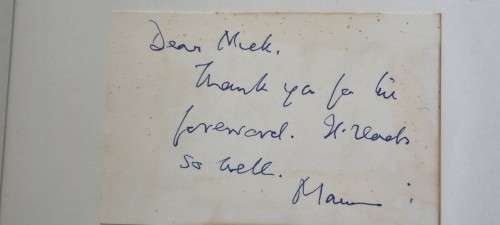 Dear Mick.
Thank you for the
foreword. It reads
so well.